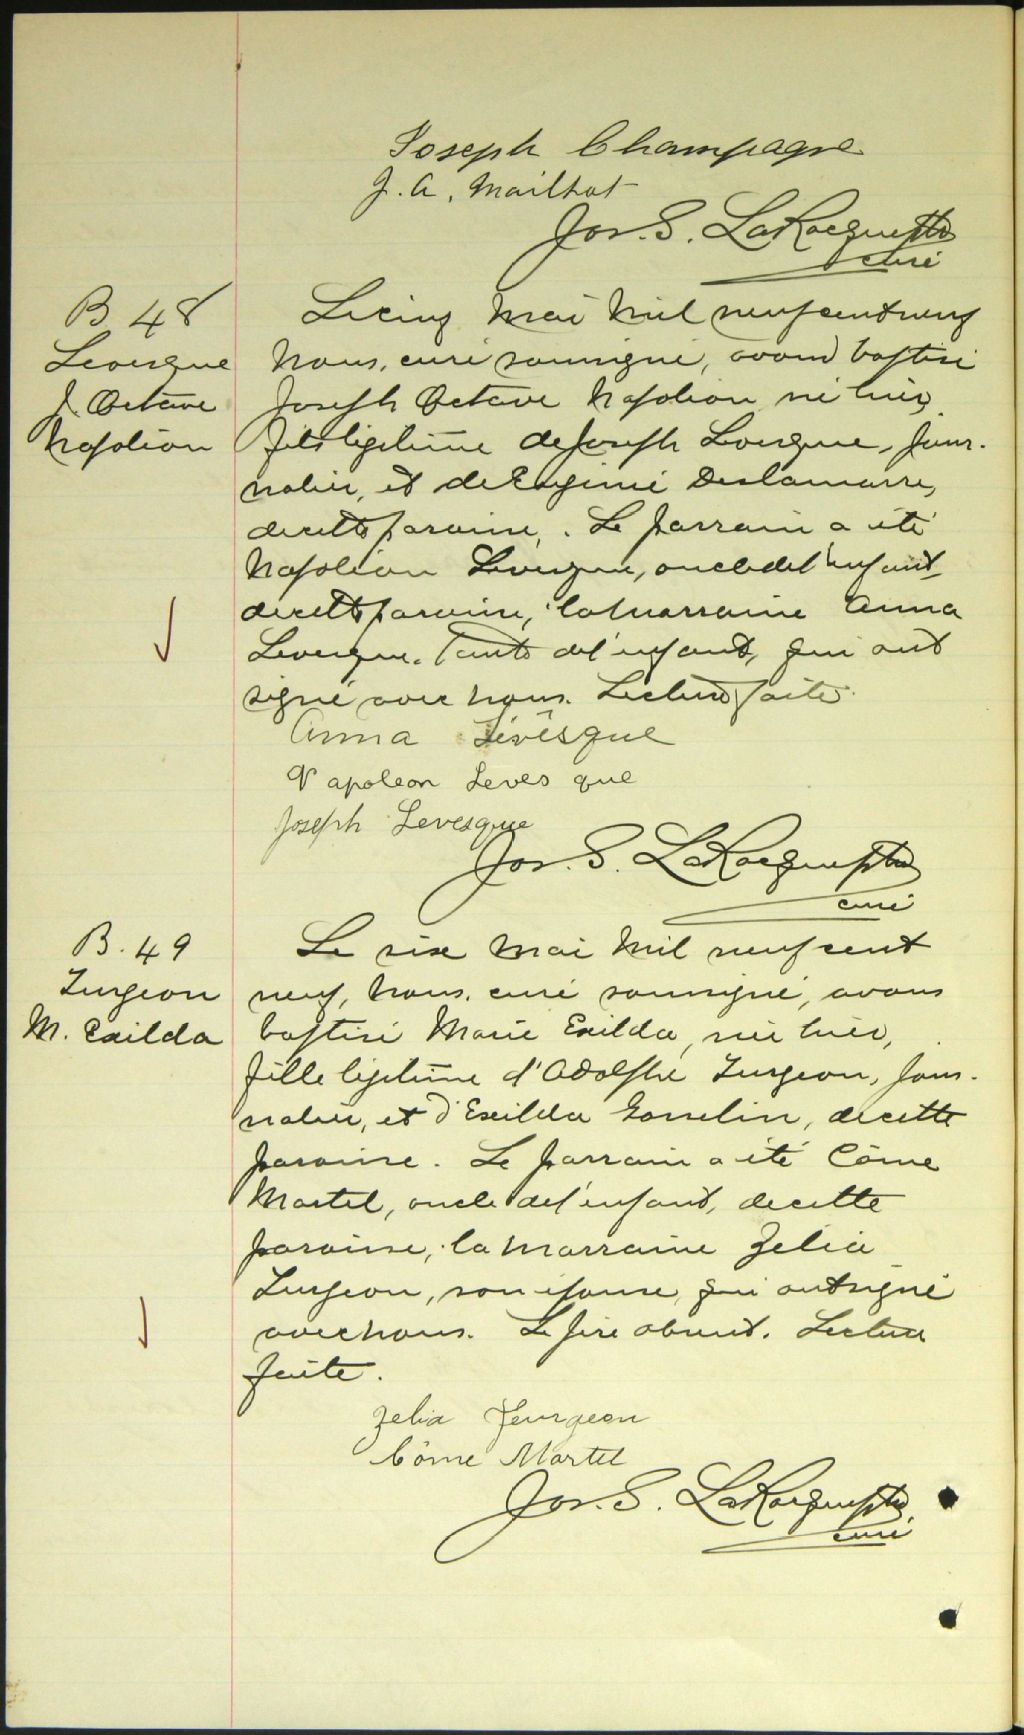 Joseph Champagne
J. A. Mailhot
Jos. S. LaRocque ptre
curé
B 48
Levesque
J. Octave
Napoléon
Le cinq Mai Mil neuf cent neuf
Nous, curé soussigné, avons baptisé
Joseph Octave Napoléon né hier,
fils légitime de Joseph Levesque, jour-
nalier, et de Eugénie Deslamarre,
de cette paroisse. Le parrain a été
Napoléon Levesque, oncle de l'enfant,
de cette paroisse, la marraine Anna
Levesque, tante de l'enfant, qui ont
signé avec nous. Lecture faite.
Anna Lévêsque
Napoleon Levesque
Joseph Levesque
Jos. S. LaRocque ptre
curé
B. 49
Turgeon
M. Exilda
Le six Mai Mil neuf cent
neuf, Nous, curé soussigné, avons
baptisé Marie Exilda, née hier,
fille légitime d'Adolphe Turgeon, jour-
nalier, et d'Exilda Gosselin, de cette
paroisse. Le parrain a été Côme
Martel, oncle de l'enfant, de cette
paroisse, la marraine Zelia
Turgeon, son épouse, qui ont signé
avec nous. Le père absent. Lecture
faite.
Zelia Teurgeon
Côme Martel
Jos. S. LaRocque ptre
curé